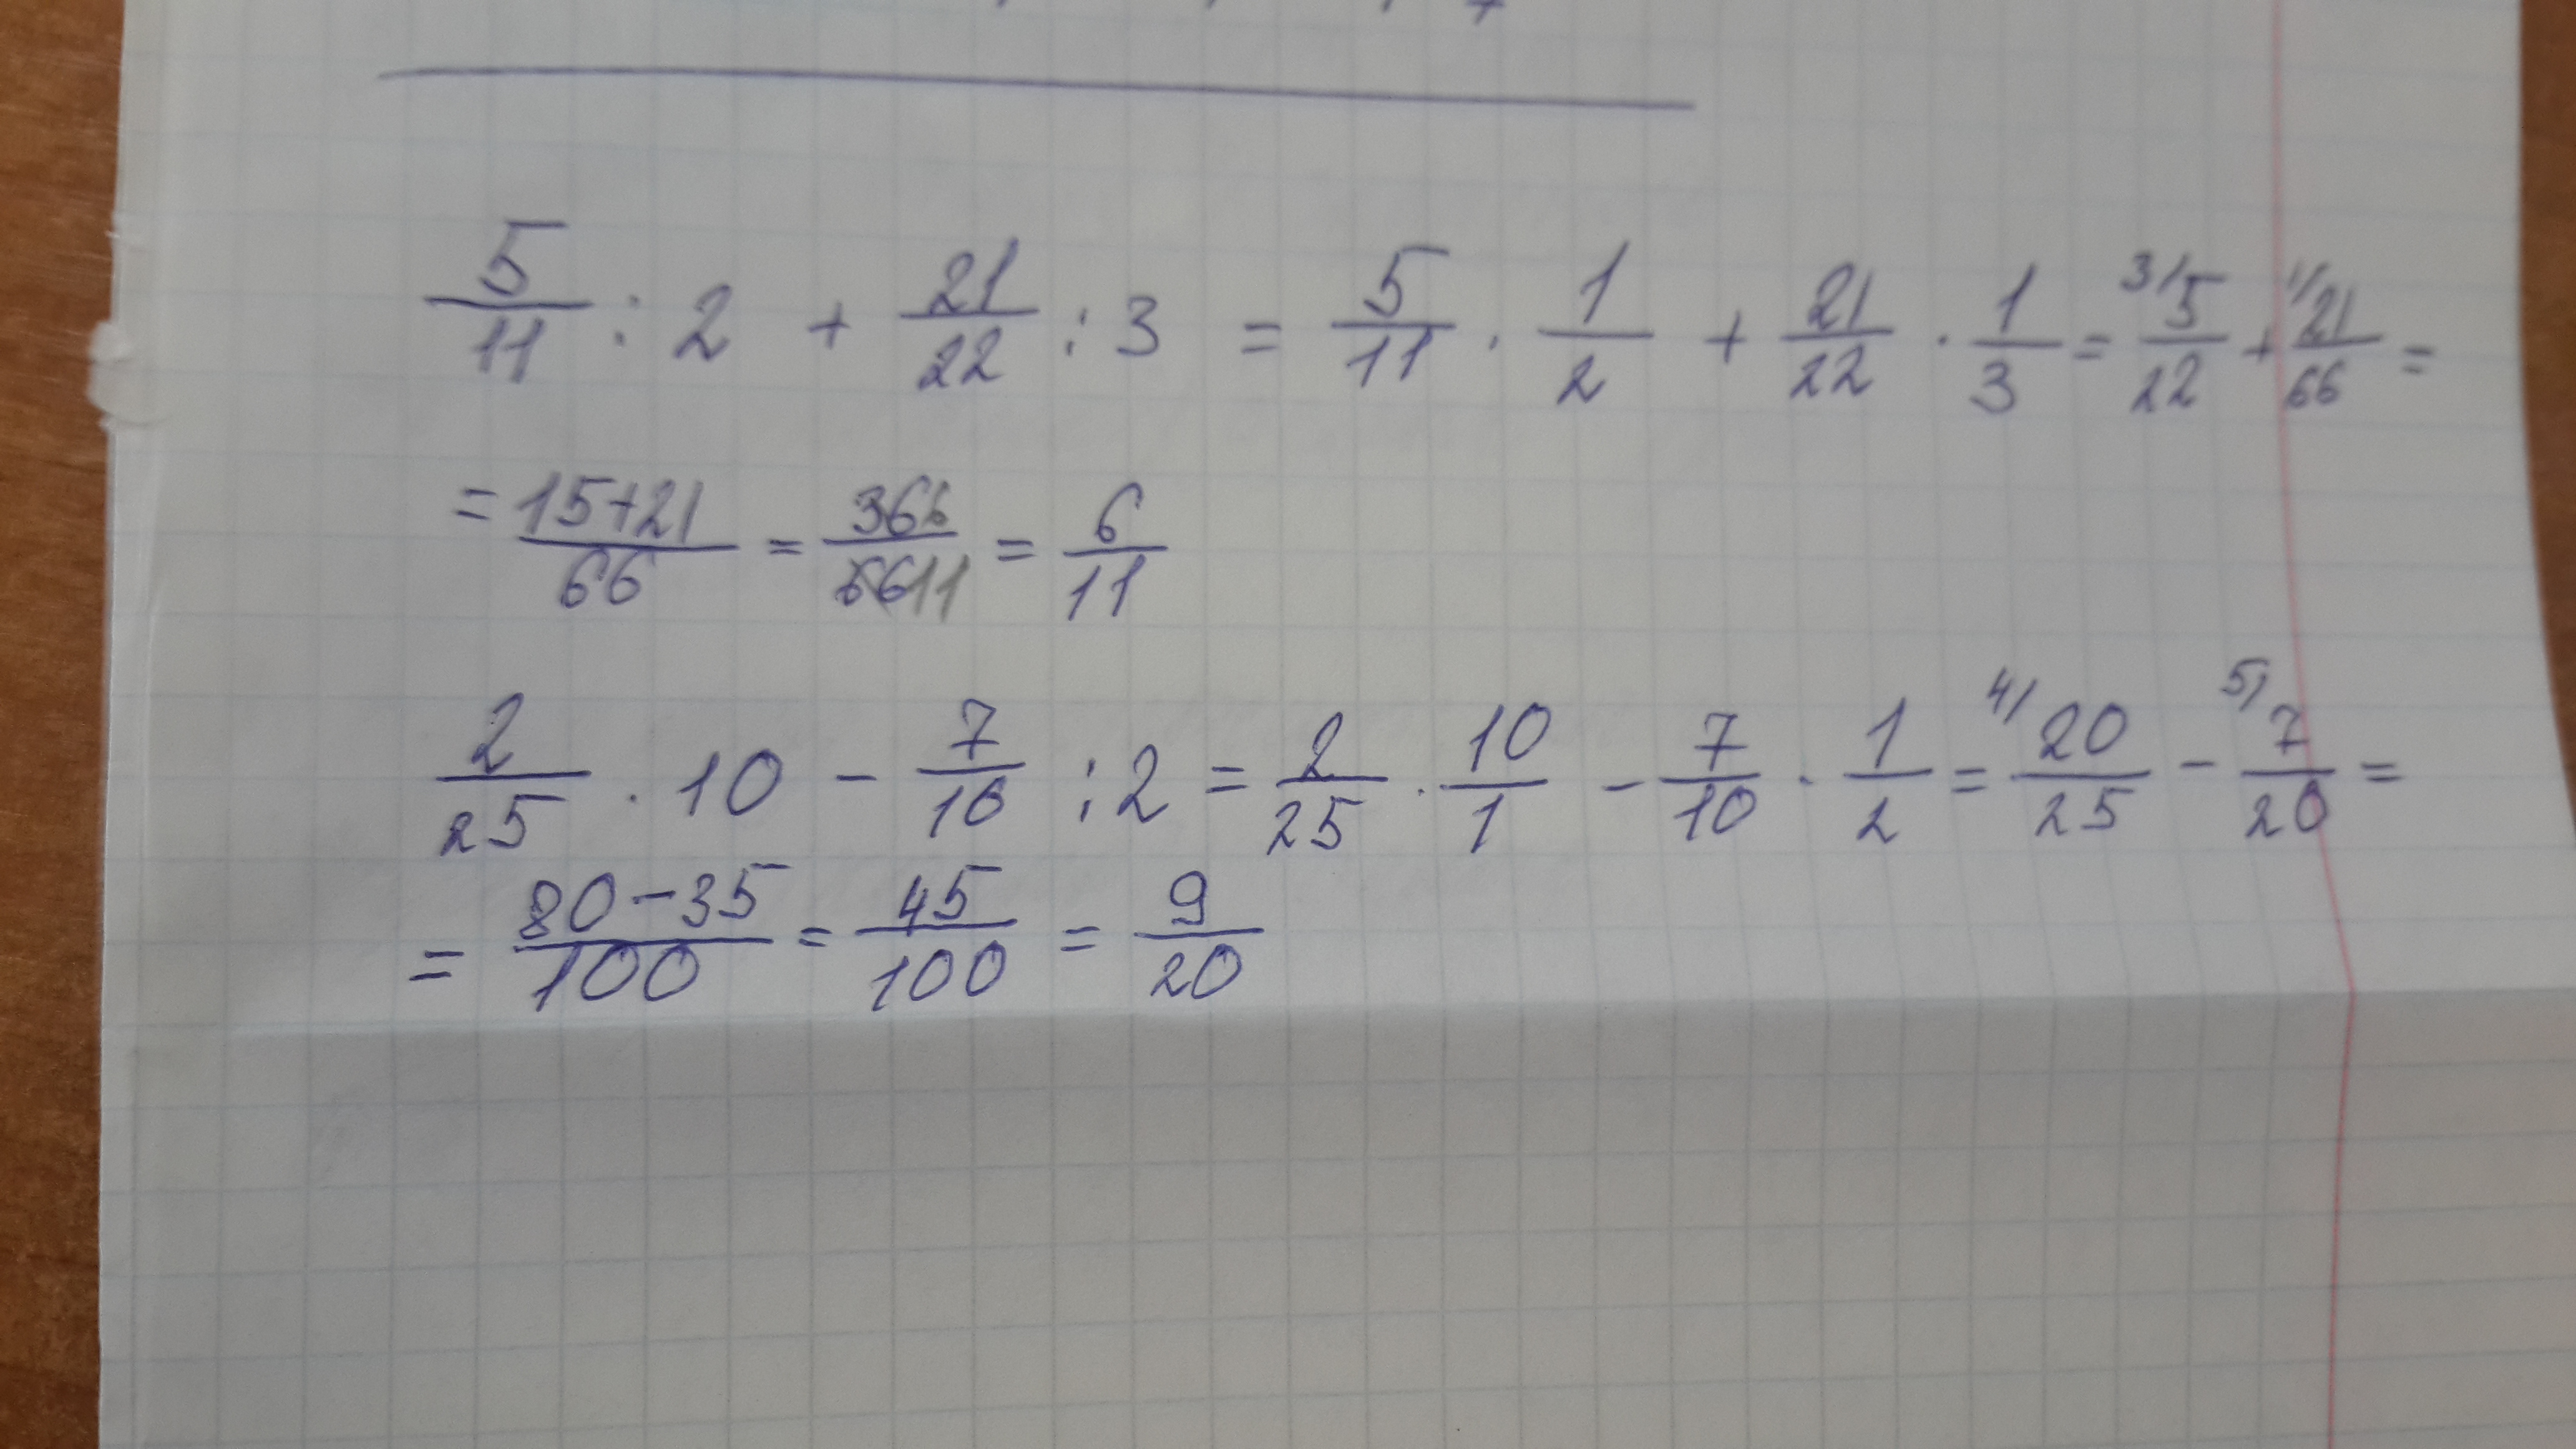 5/11 : 2 + 21/22 : 3 = 5/11 · 1/2 + 21/22 · 1/3 = 3/ 5/22 + 1/ 21/66 =
= 15+21/66 = 36 6/66 11 = 6/11
2/25 · 10 - 7/10 : 2 = 2/25 · 10/1 - 7/10 · 1/2 = 4/ 20/25 - 5/ 7/20 =
= 80-35/100 = 45/100 = 9/20